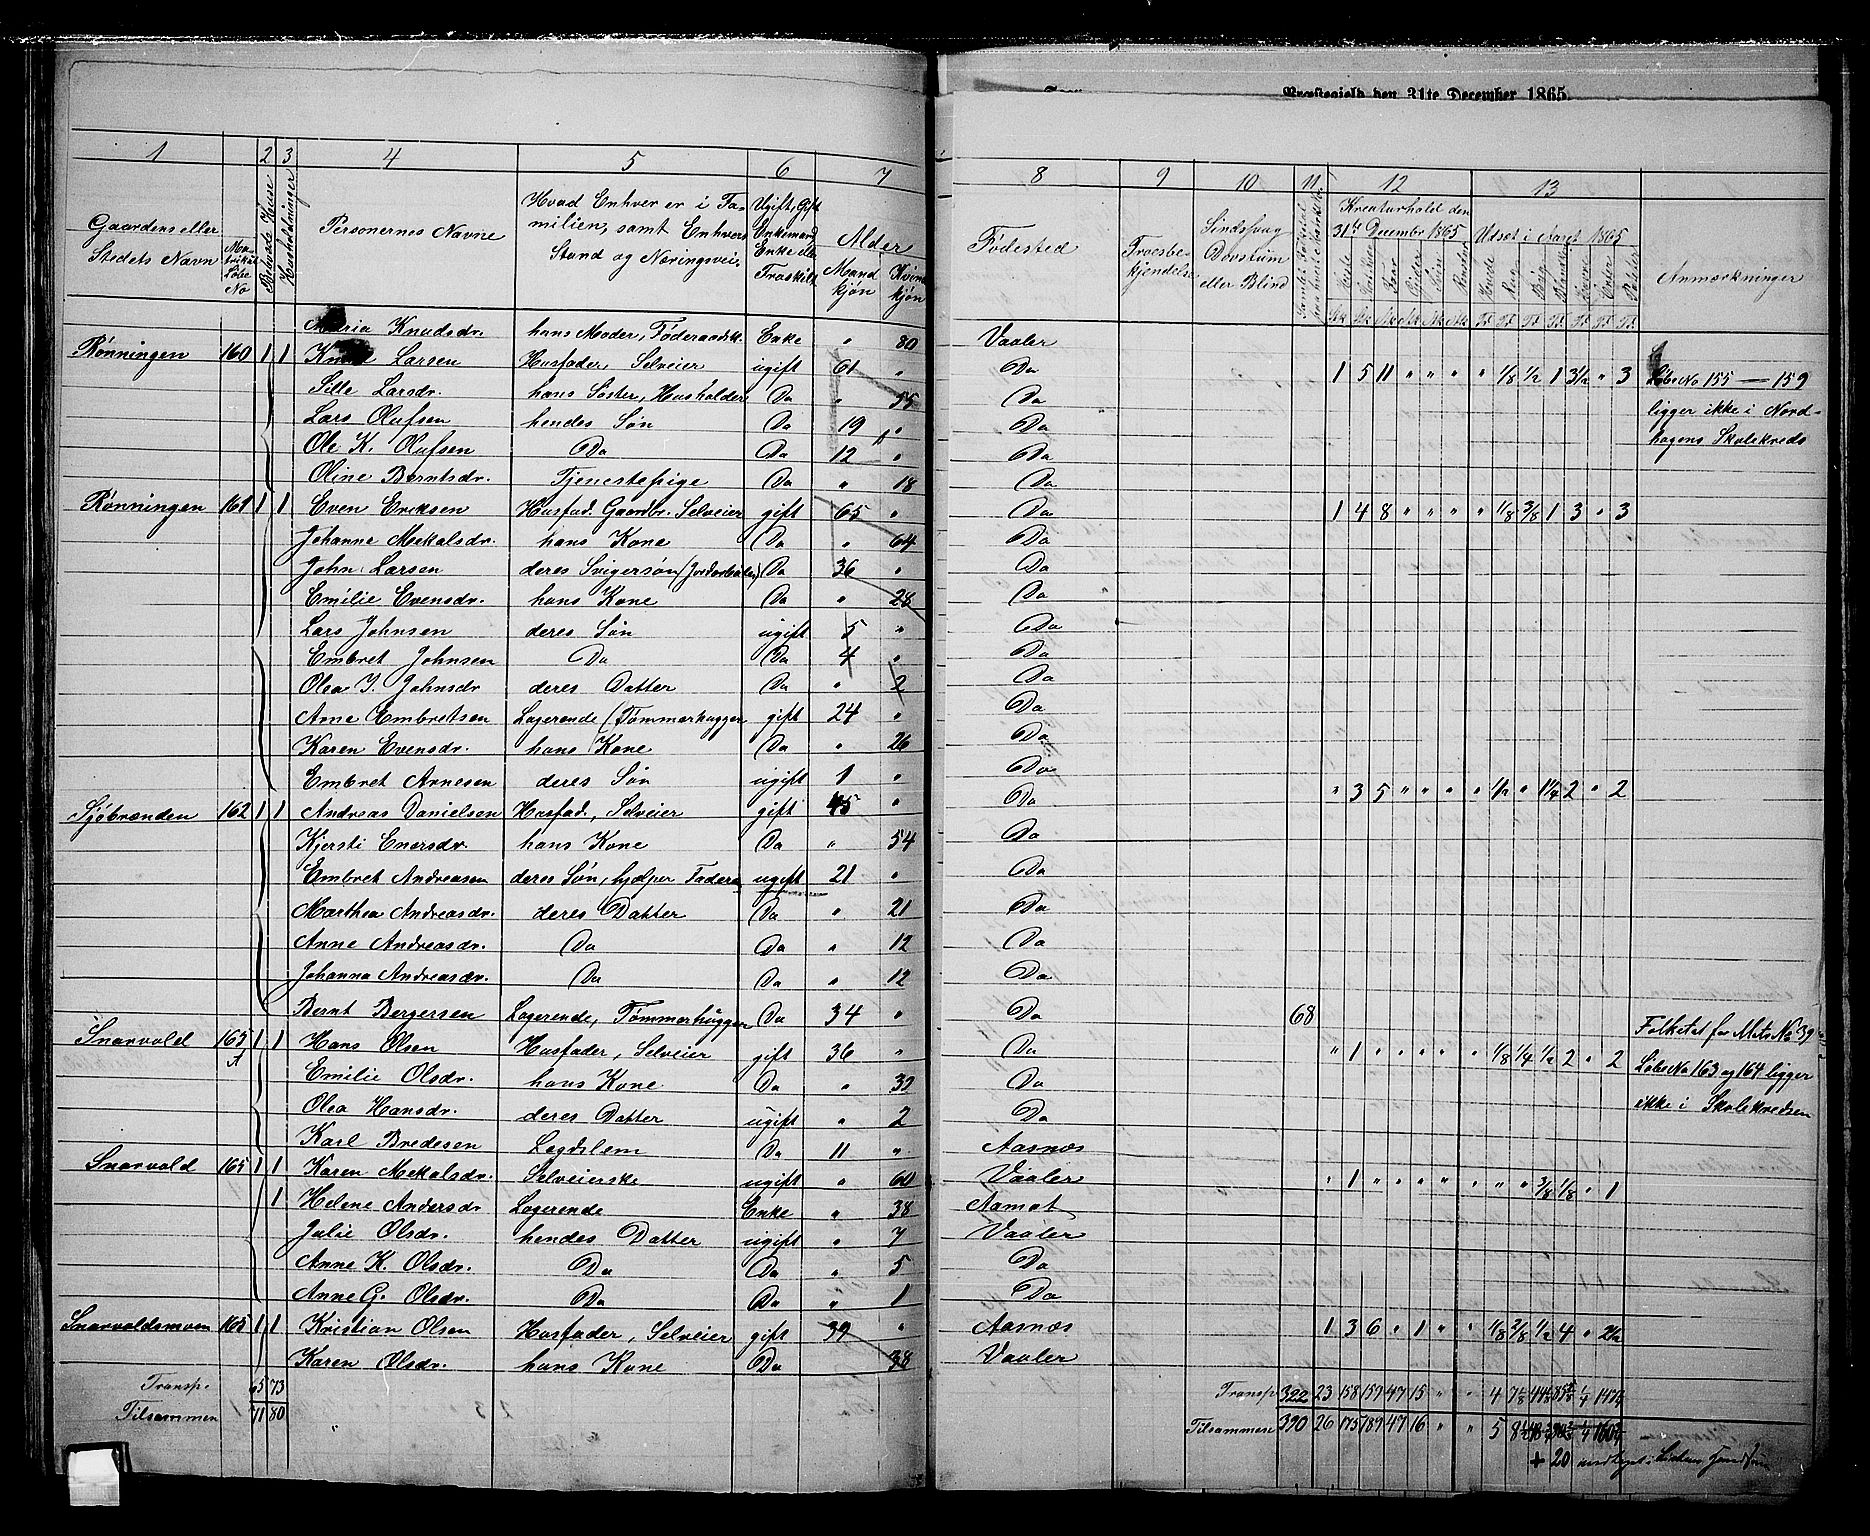 Præstegjeld den 31te December 1865
1 2 3 4 5 6 7
Gaardens eller Stedets Navn
Matrikul Løbe No
Beboede Huse
Husholdninger
Personernes Navne
Hvad Enhver er i Familien, samt Enhvers Stand og Næringsvei
Ugift, Gift Enkemand Enke eller Fraskilt
Alder
Mandkjøn Kvindekjøn
8 9 10 11 12 13
Fødested
Troesbekjendelse
Sindssvag Døvstum eller Blind
Kreaturhold den 31te Decembr 1865
Udsæt i Aaret 1865
Anmærkninger
Maria Knudsdr. hans Moder, Føderaadsk. Enke " 80 Vaaler
Rønningen 160 1 1 Knud Larsen Husfader, Selveier ugift 61 " Do 1 5 11 " " " " " 1/8 1/2 1 3 1/2 " 3
Sille Larsdr. hans Søster, Husholder Do " 55 Do
Lars Olufsen hendes Søn Do 19 " Do
Ole K. Olufsen Do Do 12 " Do
Oline Berntsdr. Tjenestepige Do " 18 Do
Løbe No 155 — 159
ligger ikke i Nord-
hagens Skolekreds
Rønningen 161 1 1 Even Ericksen Husfad. Gaardbr. Selveier gift 65 " Do 1 4 8 " " " " " 1/8 3/8 1 3 " 3
Johanne Mekalsdr. hans Kone Do " 64 Do
John Larsen deres Svigersøn (Jordarbeider) Do 36 " Do
Emilie Evensdr. hans Kone Do " 28 Do
Lars Johnsen deres Søn ugift 5 " Do
Embret Johnsen Do Do 4 " Do
Olea J. Johnsdr deres Datter Do " 2 Do
Arne Embretsen Logerende (Tømmerhugger gift 24 " Do
Karen Evensdr. hans Kone Do " 26 Do
Embret Arnesen deres Søn ugift 1 " Do
Sjøbrænden 162 1 1 Andreas Danielsen Husfad., Selveier gift 45 " Do " 3 5 " " " " " 1/2 " 1 1/4 2 " 2
Kjersti Enersdr. hans Kone Do " 54 Do
Embret Andreasen deres Søn, hjælper Faderen ugift 21 " Do
Marthea Andreasdr. deres Datter Do " 21 Do
Anne Andreasdr. Do Do " 12 Do
Johanna Andreasdr. Do Do " 12 Do
Bernt Bergersen Logerende, Tømmerhugger Do 34 " Do 68
Snarvold 165 A 1 1 Hans Olsen Husfader, Selveier gift 36 " Do " 1 " " " " " 1/8 1/4 1/2 2 " 2
Emilie Olsdr. hans Kone Do " 32 Do
Olea Hansdr. deres Datter ugift " 2 Do
Karl Bredesen Lægdslem Do 11 " Aasnæs
Folketal for Mats No 39
Løbe No 163 og 164 ligger
ikke i Skolekredsen
Snarvold 165 1 1 Karen Mekalsdr. Selveierske ugift " 60 Vaaler " 1 " " " " " " " 3/8 1/8 " 1
1 Helene Andersdr Logerende Enke " 38 Aamot
Julie Olsdr. hendes Datter ugift " 7 Vaaler
Anne K. Olsdr. Do Do " 5 Do
Anne G. Olsdr. Do Do " 1 Do
Snarvoldsmoen 165 1 1 Kristian Olsen Husfader, Selveier gift 39 " Aasnæs 1 3 6 " 1 " " 1/8 2/8 1/2 4 " 2 1/2
Karen Olsdr. hans Kone Do " 38 Vaaler
Transp. 65 73 Transp 322 23 158 159 47 15 " " 4
Tilsammen 71 80 Tilsammen 390 26 175 189 47 16 " " 5
+ 20